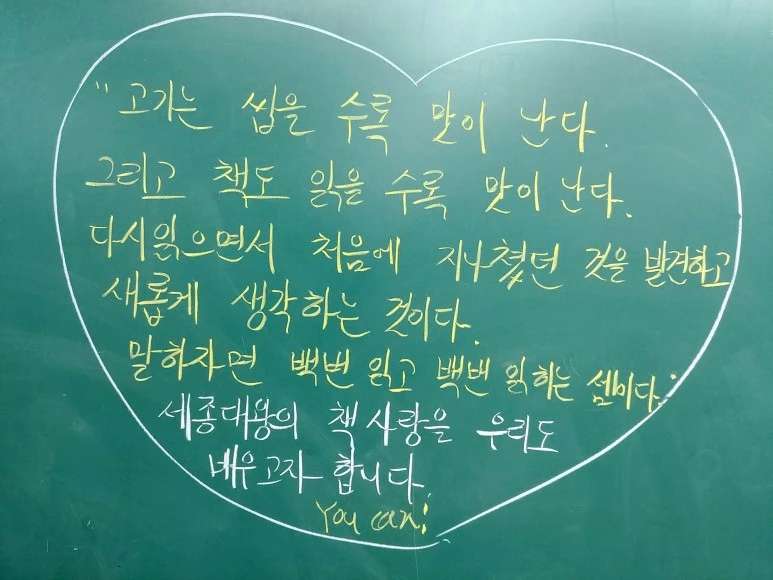 "고기는 씹을 수록 맛이 난다.
그리고 책도 읽을 수록 맛이 난다.
다시읽으면서 처음에 지나쳤던 것을 발견하고
새롭게 생각하는 것이다.
말하자면 백번 읽고 백번 읽하는 셈이다."
세종대왕의 책 사랑을 우리도
배우고자 합니다.
You can!